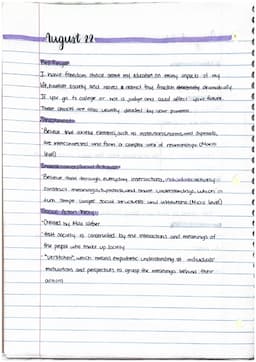 August 22
I have freedom choice about my education on many aspects of my
life, however society and norms
If you go to college or not a judge and could affect your future.
These choices are also usually decided by your parents.
are interconnected and form a complex web of relationships (Macro
level)
Believe that through everyday interactions, individuals actively
construct meanings, symbols, and shared understandings, which in
turn shape larger social structures and institutions (Micro level)
Social Action Theory:
- Created by Max Weber
- that society is constructed by the interactions and meanings of
the people who make up society
- "Verstehen", which means empathetic understanding of individuals'
motivations and perspectives to grasp the meanings behind their
actions